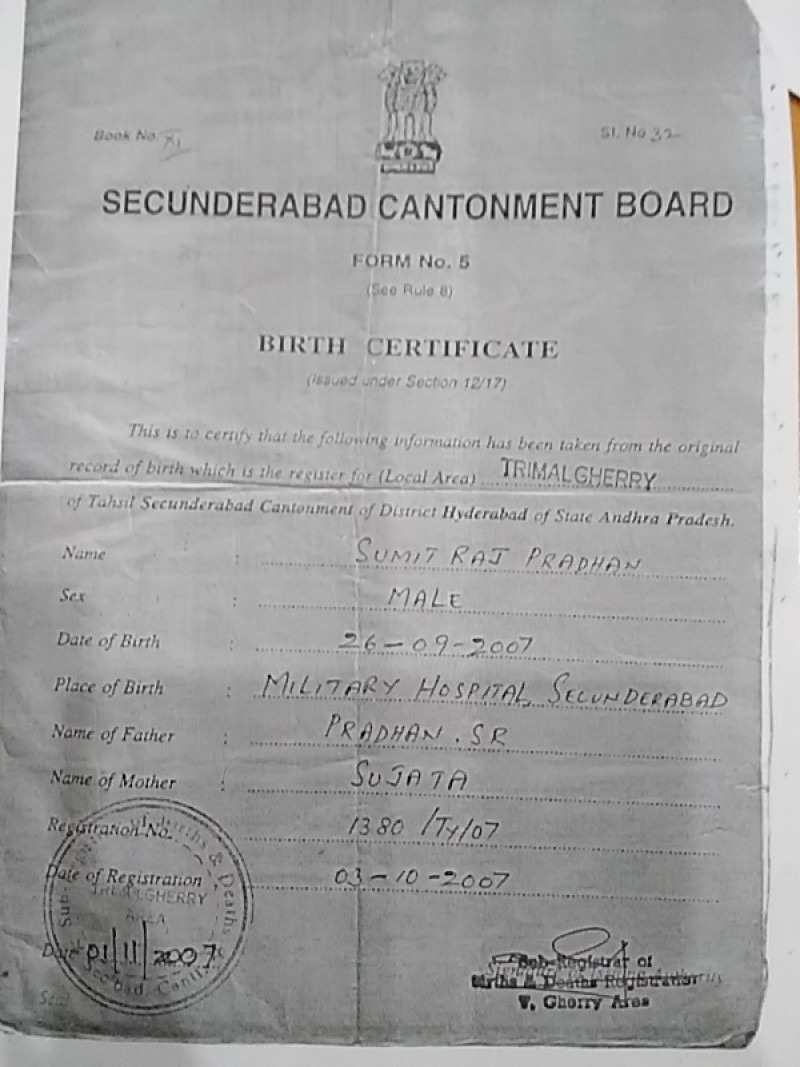 Book No. XI
Sl. No 32
SECUNDERABAD CANTONMENT BOARD
FORM No. 5
(See Rule 8)
BIRTH CERTIFICATE
(Issued under Section 12/17)
This is to certify that the following information has been taken from the original
record of birth which is the register for (Local Area) TRIMALGHERRY
of Tahsil Secunderabad Cantonment of District Hyderabad of State Andhra Pradesh.
Name : SUMIT RAJ PRADHAN
Sex : MALE
Date of Birth : 26-09-2007
Place of Birth : MILITARY HOSPITAL, SECUNDERABAD
Name of Father : PRADHAN. SR
Name of Mother : SUJATA
Registration No. 1380 /Ty/07
Date of Registration 03-10-2007
TRIMALGHERRY
AREA
Date 01/11/2007
Sub-Registrar of
Births & Deaths Registration
T. Gherry Area
Seal